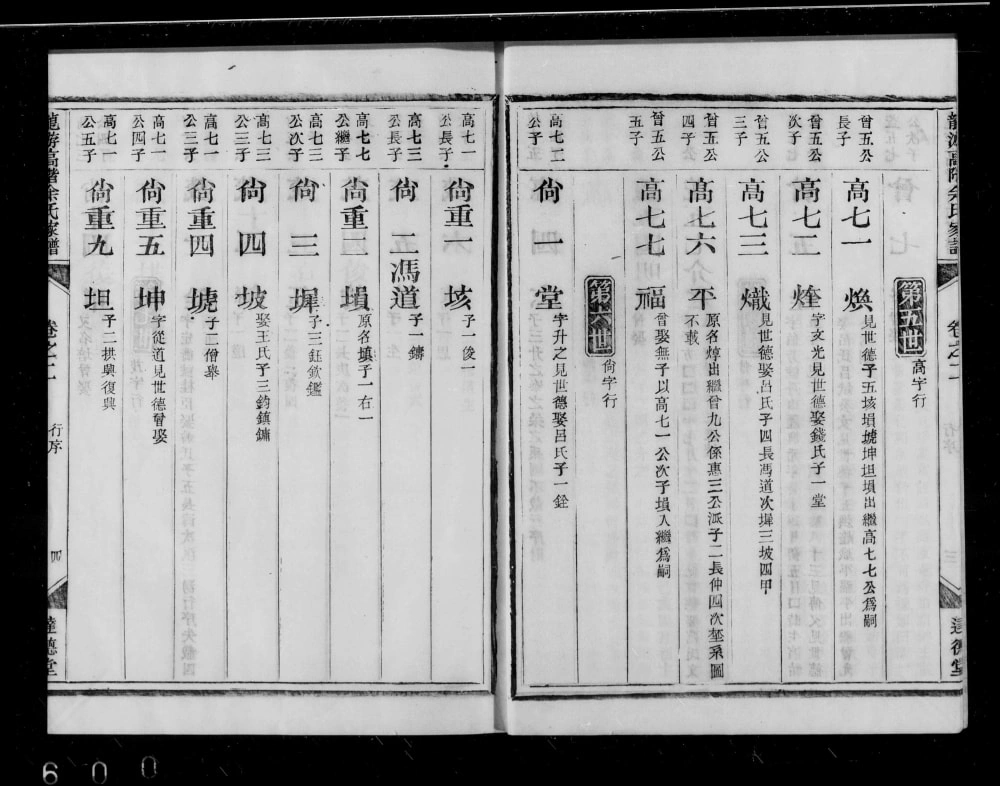 第五世 高字行
曾五公長子 高七一 煥 見世德子五垓塤墟坤坦塤出繼高七七公爲嗣
曾五公次子 高七二 煃 字文光見世德娶錢氏子一堂
曾五公三子 高七三 熾 見世德娶呂氏子四長馮道次墀三坡四甲
曾五公四子 高七六 平 原名焞出繼曾九公係惠三公派子二長仲四次荎系圖不載
曾五公五子 高七七 福 曾娶無子以高七一公次子塤入繼爲嗣
第六世 尙字行
高七二公子 尙一 堂 字升之見世德娶呂氏子一銓
卷之二
行序
三
達德堂
高七一公長子 尙重一 垓 子一俊一
高七三公長子 尙二 馮道 子一鑄
高七七公繼子 尙重二 塤 原名塡子一右一
高七三公次子 尙三 墀 子三鈺欽鑑
高七三公三子 尙四 坡 娶王氏子三鈞鎮鏞
高七一公三子 尙重四 墟 子二僧舉
高七一公四子 尙重五 坤 字從道見世德曾娶
高七一公五子 尙重九 坦 子二拱興復興
龍游高階余氏家譜
卷之二
行序
四
達德堂
600